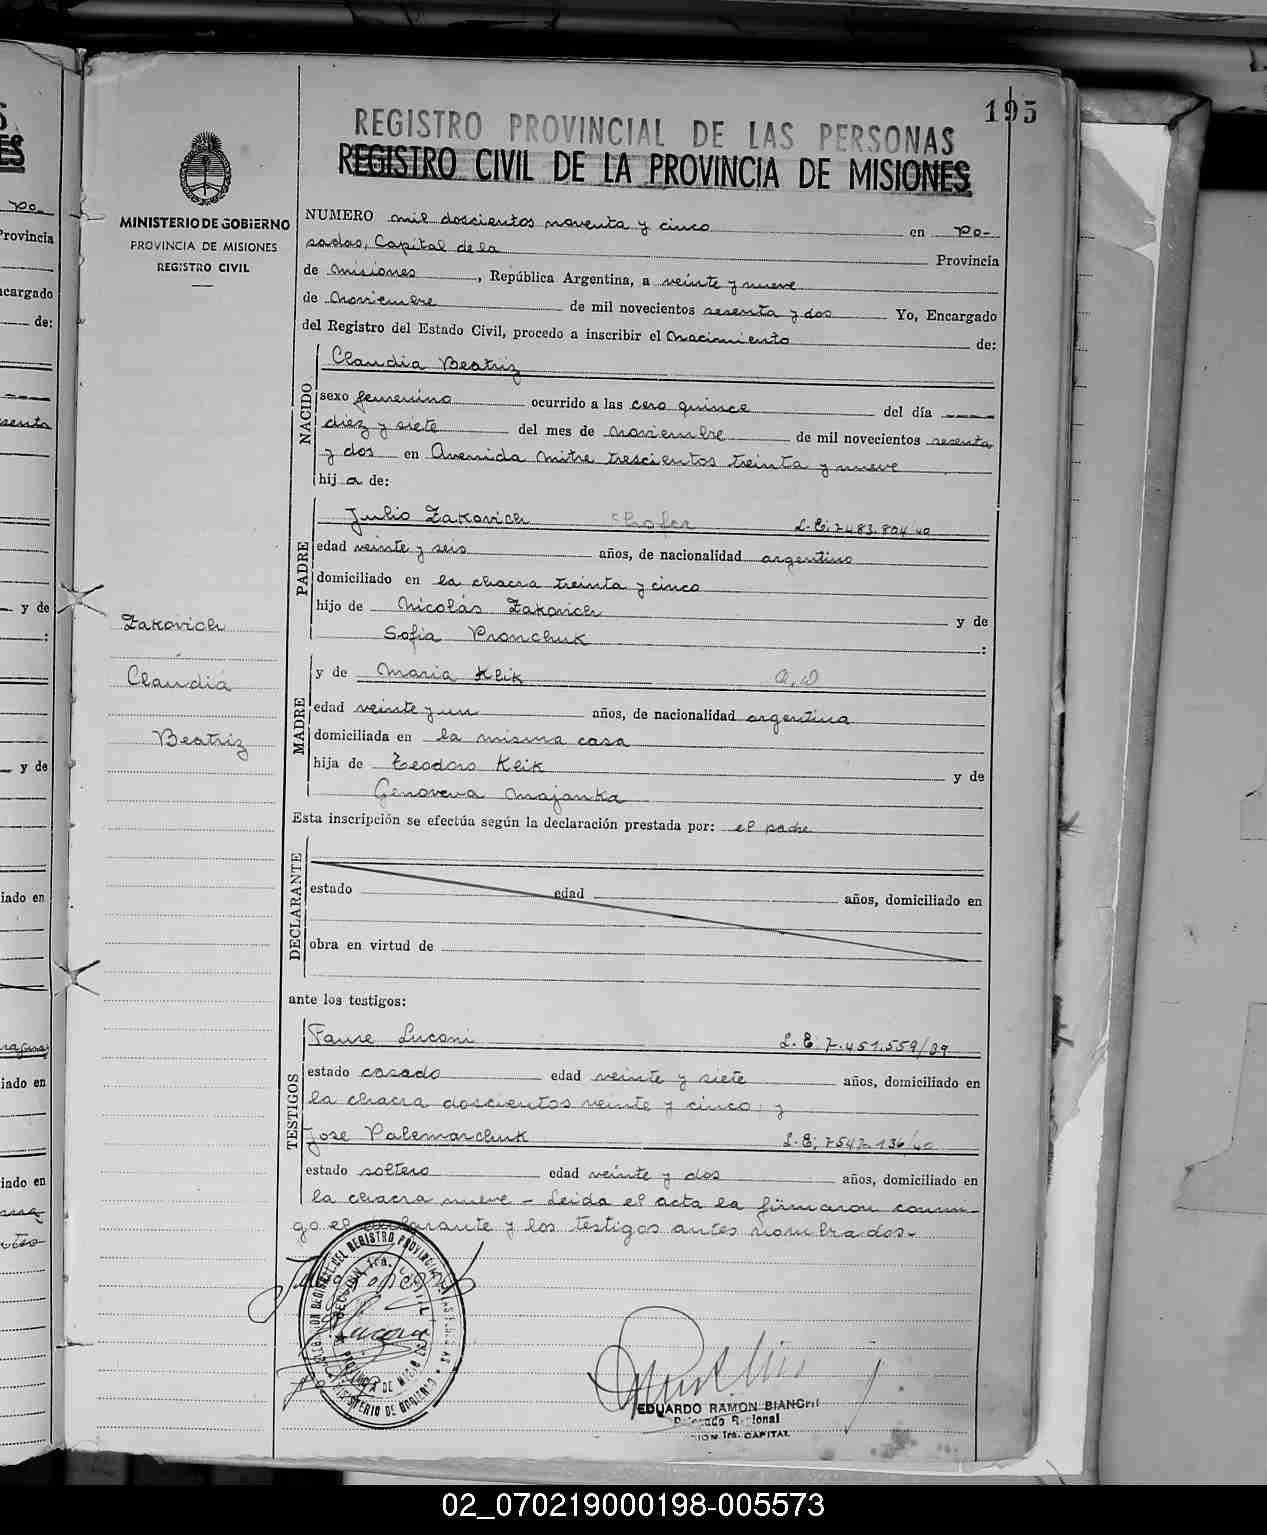 195
REGISTRO PROVINCIAL DE LAS PERSONAS
REGISTRO CIVIL DE LA PROVINCIA DE MISIONES
MINISTERIO DE GOBIERNO
PROVINCIA DE MISIONES
REGISTRO CIVIL
NUMERO mil doscientos noventa y cinco en Po-
sadas, Capital de la Provincia
de Misiones, República Argentina, a veinte y nueve
de Noviembre de mil novecientos sesenta y dos Yo, Encargado
del Registro del Estado Civil, procedo a inscribir el Nacimiento de:
NACIDO
Claudia Beatriz
sexo femenino ocurrido a las cero quince del día ----
diez y siete del mes de Noviembre de mil novecientos sesenta
y dos en Avenida Mitre trescientos treinta y nueve
hij a de:
PADRE
Julio Zakovich chofer L.E. 7483.804/40
edad veinte y seis años, de nacionalidad argentino
domiciliado en la chacra treinta y cinco
hijo de Nicolás Zakovich y de
Sofia Pronchuk :
Zakovich
Claudia
Beatriz
MADRE
y de Maria Klik Q.D
edad veinte y un años, de nacionalidad argentina
domiciliada en la misma casa
hija de Teodoro Klik y de
Genoveva Majanka
Esta inscripción se efectúa según la declaración prestada por: el padre
DECLARANTE
estado edad años, domiciliado en
obra en virtud de
ante los testigos:
TESTIGOS
Faure Luconi L.E. 7.451.559/39
estado casado edad veinte y siete años, domiciliado en
la chacra doscientos veinte y cinco; y
Jose Palemarchuk L.E. 7547.136/40
estado soltero edad veinte y dos años, domiciliado en
la chacra nueve - Leida el acta la firmaron conmi-
go el declarante y los testigos antes nombrados.-
EDUARDO RAMON BIANCHI
Delegado Regional
1ra. CAPITAL
02_070219000198-005573